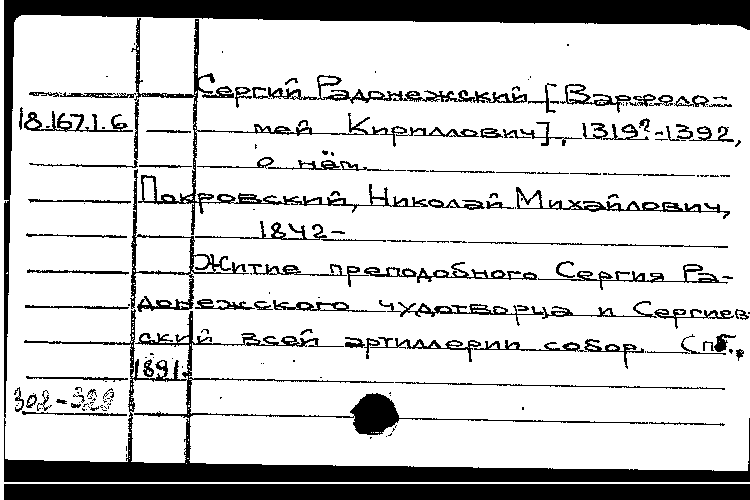 Сергий Радонежский [Варфоло-
18.167.1.6 мей Кириллович], 1319?-1392,
о нём.
Покровский, Николай Михайлович,
1842-
Житие преподобного Сергия Ра-
донежского чудотворца и Сергиев-
ский всей артиллерии собор. Спб.,
1891.
302-329